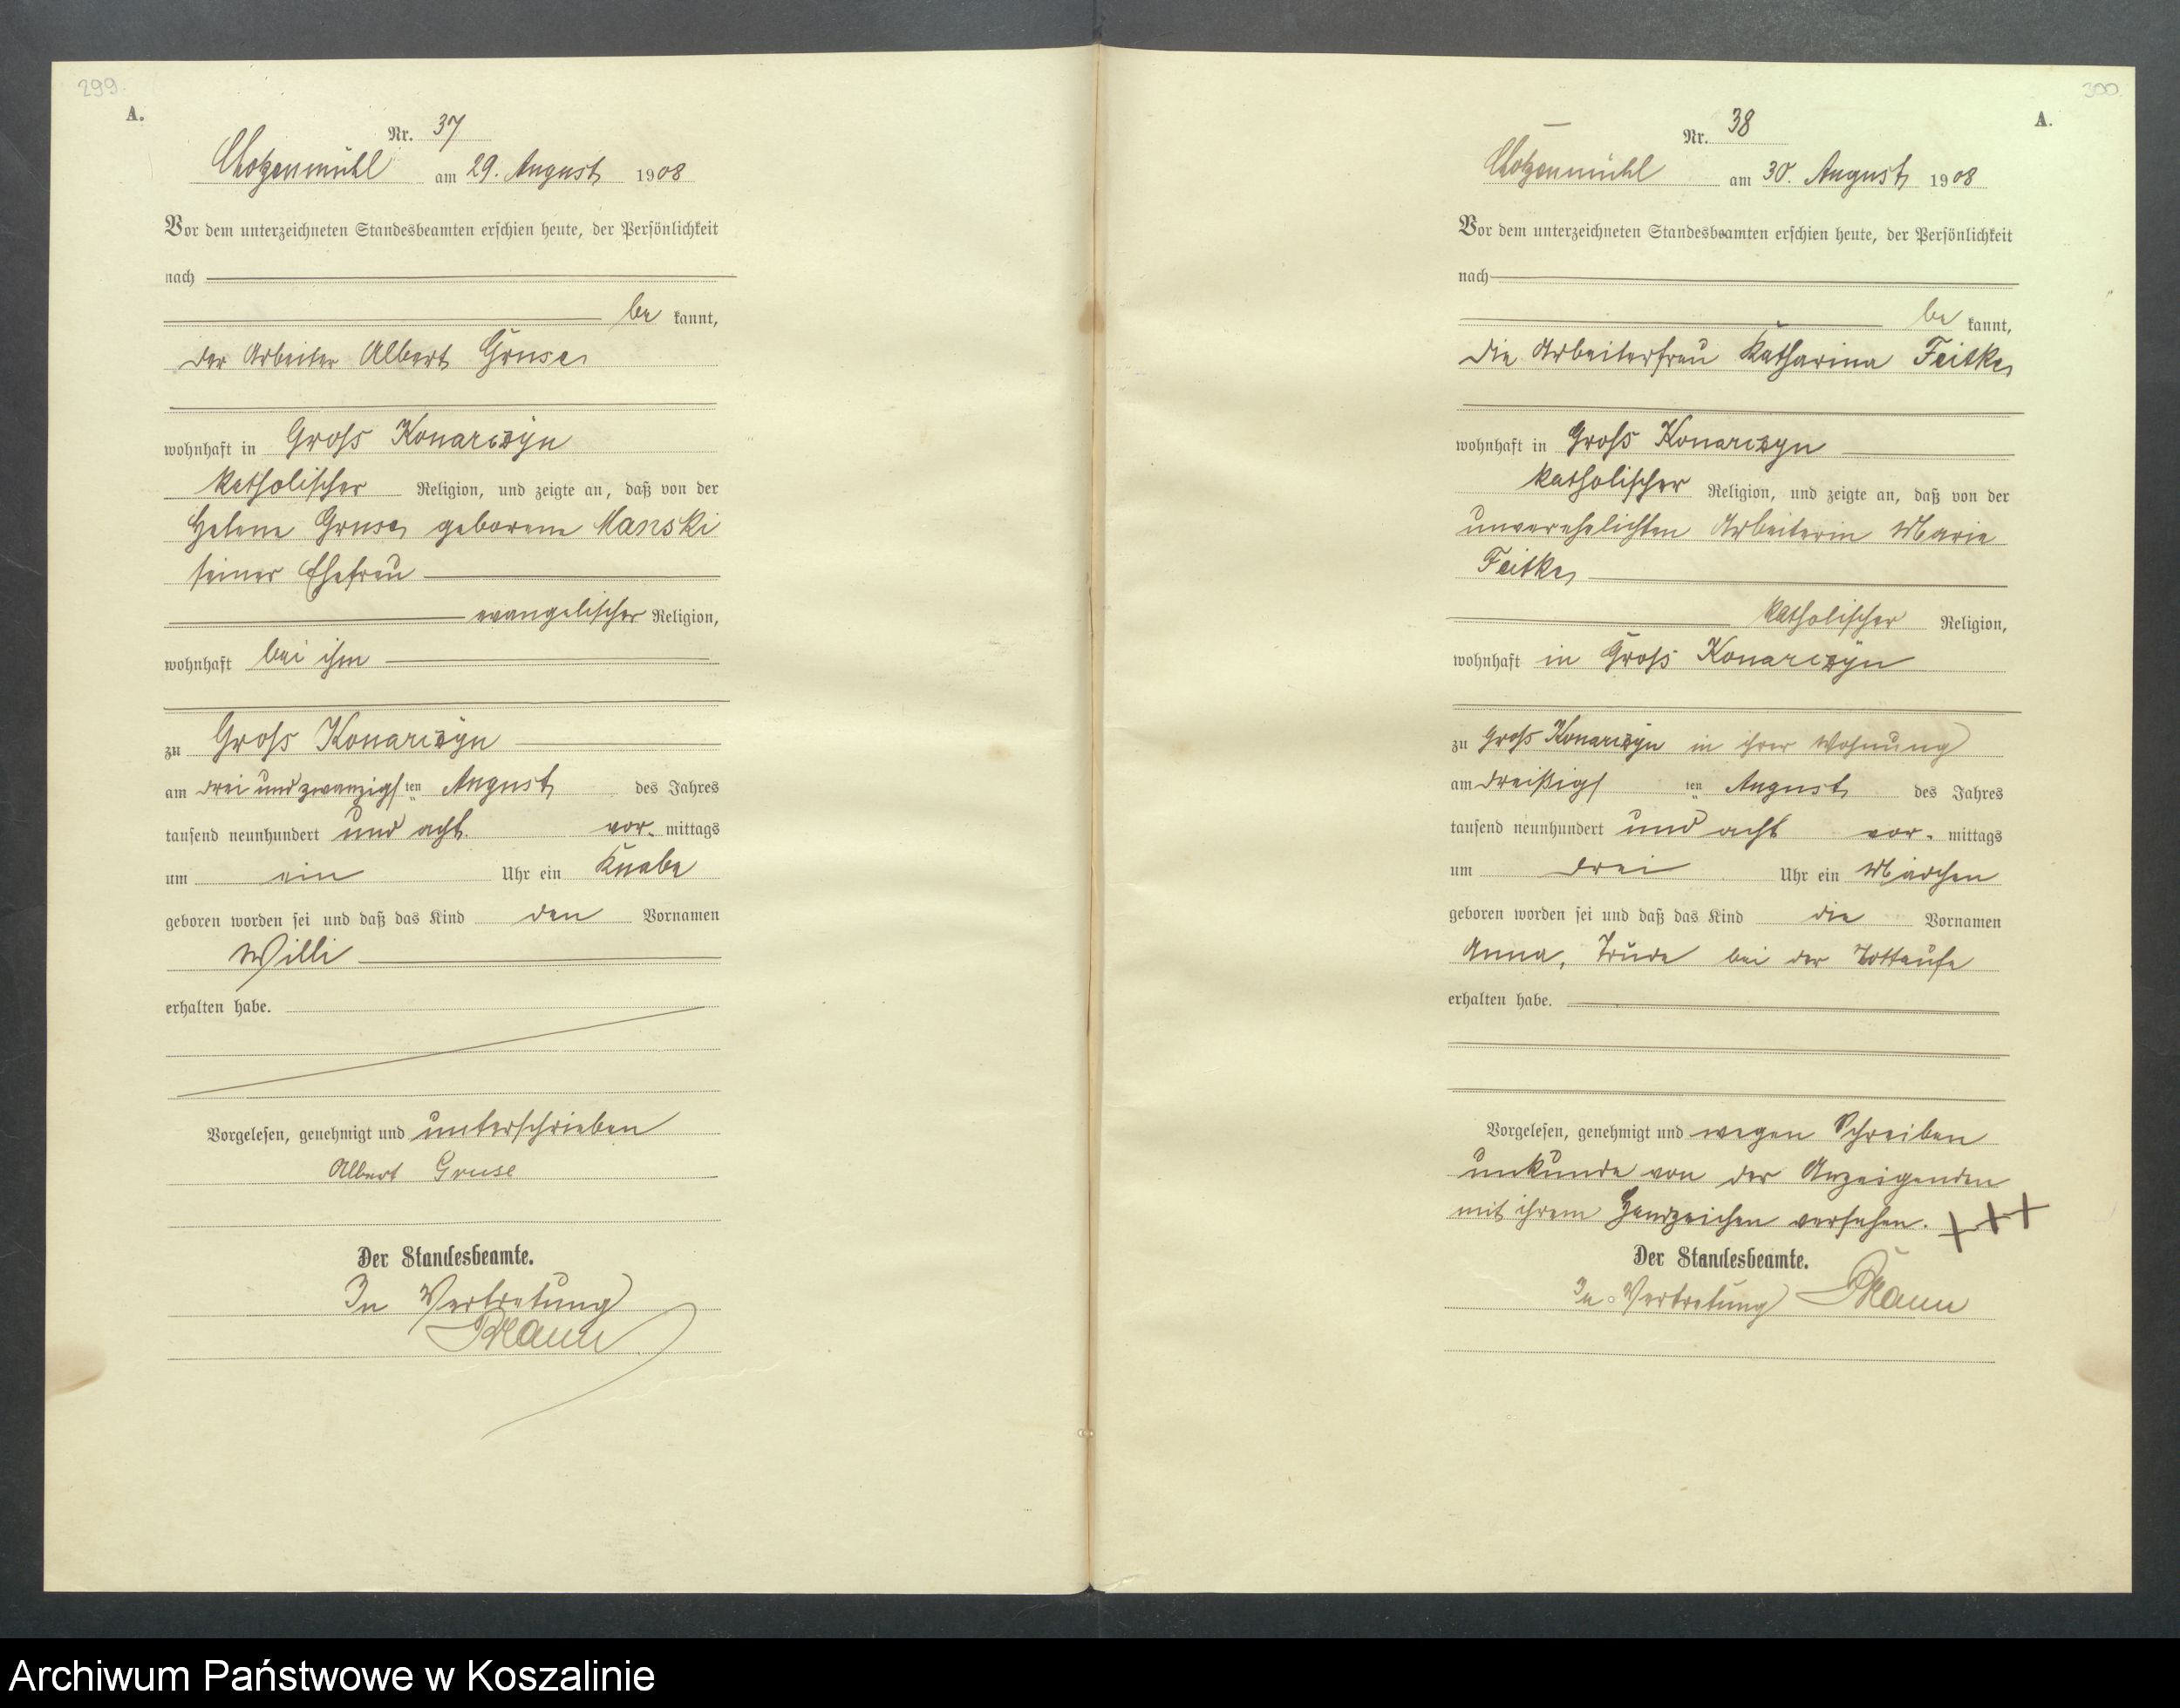 299.
A.
Nr. 37
Chotzenmühl am 29. August 1908
Vor dem unterzeichneten Standesbeamten erschien heute, der Persönlichkeit
nach
be kannt,
der Arbeiter Albert Gruse
wohnhaft in Groß Konarczyn
katholischer Religion, und zeigte an, daß von der
Helene Gruse geborene Manski
seiner Ehefrau
evangelischer Religion,
wohnhaft bei ihm
zu Groß Konarczyn
am drei und zwanzigsten August des Jahres
tausend neunhundert und acht vor- mittags
um ein Uhr ein Knabe
geboren worden sei und daß das Kind den Vornamen
Willi
erhalten habe.
Vorgelesen, genehmigt und unterschrieben
Albert Gruse
Der Standesbeamte.
In Vertretung
300.
A.
Nr. 38
Chotzenmühl am 30. August 1908
Vor dem unterzeichneten Standesbeamten erschien heute, der Persönlichkeit
nach
be kannt,
die Arbeiterfrau Katharina Feitke
wohnhaft in Groß Konarczyn
katholischer Religion, und zeigte an, daß von der
unverehelichten Arbeiterin Marie
Feitke
katholischer Religion,
wohnhaft in Groß Konarczyn
zu Groß Konarczyn in ihrer Wohnung
am dreißigsten August des Jahres
tausend neunhundert und acht vor- mittags
um drei Uhr ein Mädchen
geboren worden sei und daß das Kind die Vornamen
Anna, Trude bei der Nottaufe
erhalten habe.
Vorgelesen, genehmigt und wegen Schreiben
unkunde von der Anzeigenden
mit ihrem Handzeichen versehen. +++
Der Standesbeamte.
In Vertretung
Archiwum Państwowe w Koszalinie